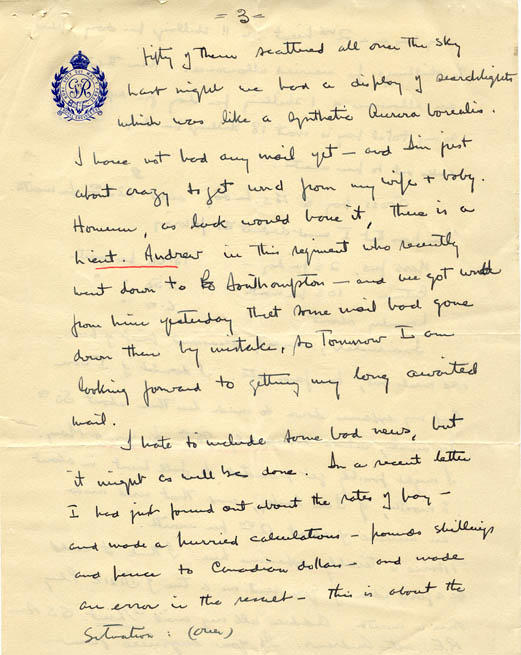 - 3 -
Fifty of them scattered all over the sky
Last night we had a display of searchlights
which was like a synthetic Aurora borealis.
I have not had any mail yet - and I'm just
about crazy to get word from my wife + baby.
However, as luck would have it, there is a
Lieut. Andrew in this regiment who recently
went down to Southampton - and we got word
from him yesterday that some mail had gone
down there by mistake, so Tomorrow I am
looking forward to getting my long awaited
mail.
I hate to include some bad news, but
it might as well be done. In a recent letter
I had just found out about the rates of pay -
and made a hurried calculations - pounds shillings
and pence to Canadian dollars - and made
an error in the result - this is about the
situation : (over)